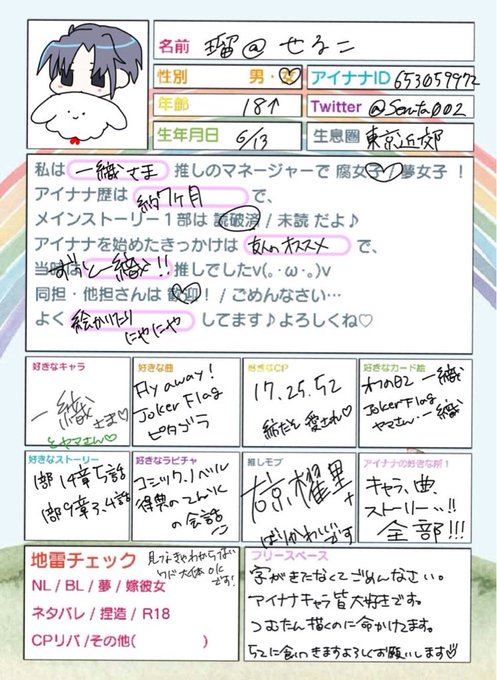 名前 瑠@せるこ
性別 男・女 アイナナID 653059972
年齢 18↑ Twitter @Senuta002
生年月日 6/13 生息圏 東京近郊
私は 一織さま 推しのマネージャーで 腐女子 / 夢女子 !
アイナナ歴は 約7ヶ月 で、
メインストーリー1部は 読破済 / 未読 だよ♪
アイナナを始めたきっかけは 友人のオススメ で、
当時は ずっと一織!! 推しでしたv(。・ω・。)v
同担・他担さんは 歓迎! / ごめんなさい…
よく 絵かいたり にやにや してます♪よろしくね♡
好きなキャラ
一織さま♡
とヤマさん♡
好きな曲
Fly away!
Joker Flag
ピタゴラ
好きなCP
17.25.52
好きなカード絵
一織
Joker Flag
ヤマさん・一織
好きなストーリー
1部14章5話
1部9章3.4話
好きなラビチャ
コミック、ノベル
得典の
の会話
推しモブ
アイナナの好きな所!
キャラ、曲、
ストーリー…!!
全部!!!
地雷チェック
NL / BL / 夢 / 嫁彼女
ネタバレ / 捏造 / R18
CPリバ /その他( )
フリースペース
字がきたなくてごめんなさい。
アイナナキャラ皆大好きです。
つむたん描くのに命かけてます。
52に食いつきますよろしくお願いします♡